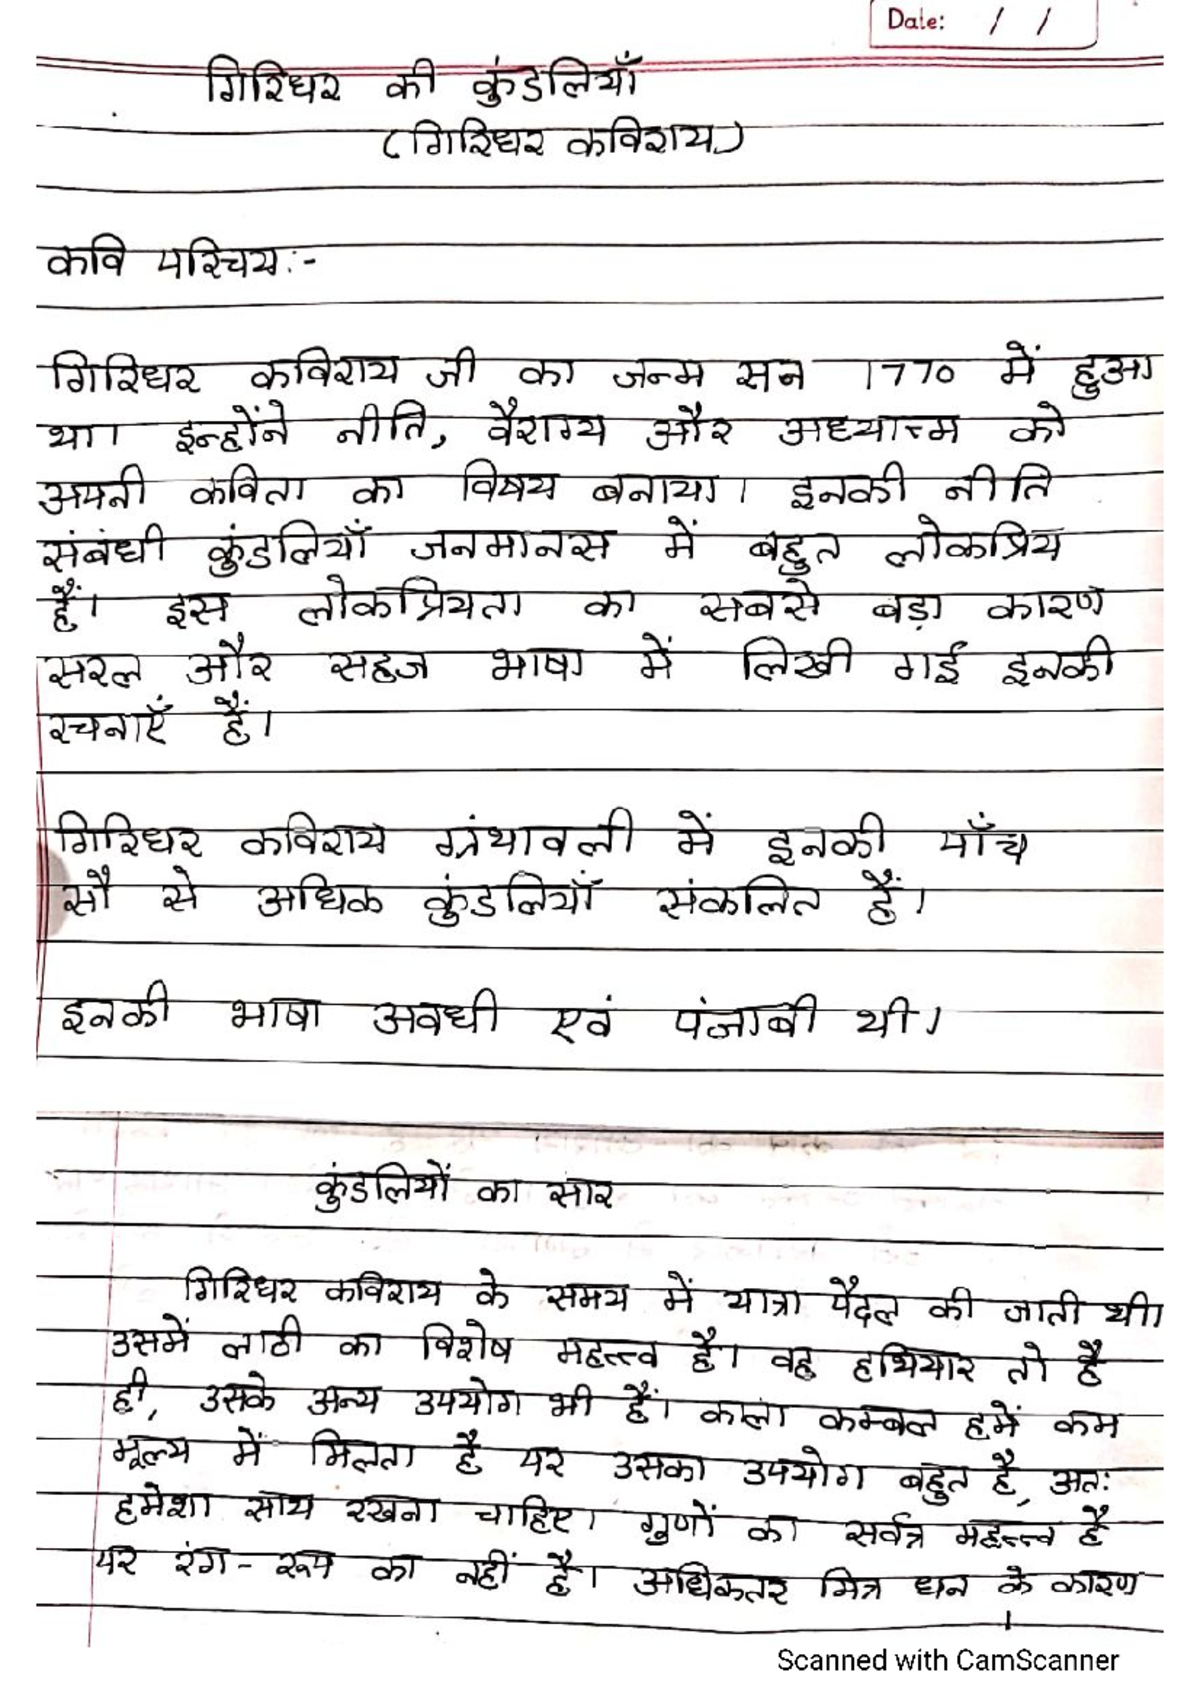 Date: / /
गिरिधर की कुंडलियाँ
(गिरिधर कविराय)
कवि परिचय:-
गिरिधर कविराय जी का जन्म सन 1770 में हुआ
था। इन्होंने नीति, वैराग्य और अध्यात्म को
अपनी कविता का विषय बनाया। इनकी नीति
संबंधी कुंडलियाँ जनमानस में बहुत लोकप्रिय
हैं। इस लोकप्रियता का सबसे बड़ा कारण
सरल और सहज भाषा में लिखी गई इनकी
रचनाएँ हैं।
गिरिधर कविराय ग्रंथावली में इनकी पाँच
सौ से अधिक कुंडलियाँ संकलित हैं।
इनकी भाषा अवधी एवं पंजाबी थी।
कुंडलियों का सार
गिरिधर कविराय के समय में यात्रा पैदल की जाती थी।
उसमें लाठी का विशेष महत्त्व है। वह हथियार तो है
ही, उसके अन्य उपयोग भी हैं। काला कम्बल हमें कम
मूल्य में मिलता है पर उसका उपयोग बहुत है, अतः
हमेशा साथ रखना चाहिए। गुणों का सर्वत्र महत्त्व है
पर रंग-रूप का नहीं है। अधिकतर मित्र धन के कारण
Scanned with CamScanner